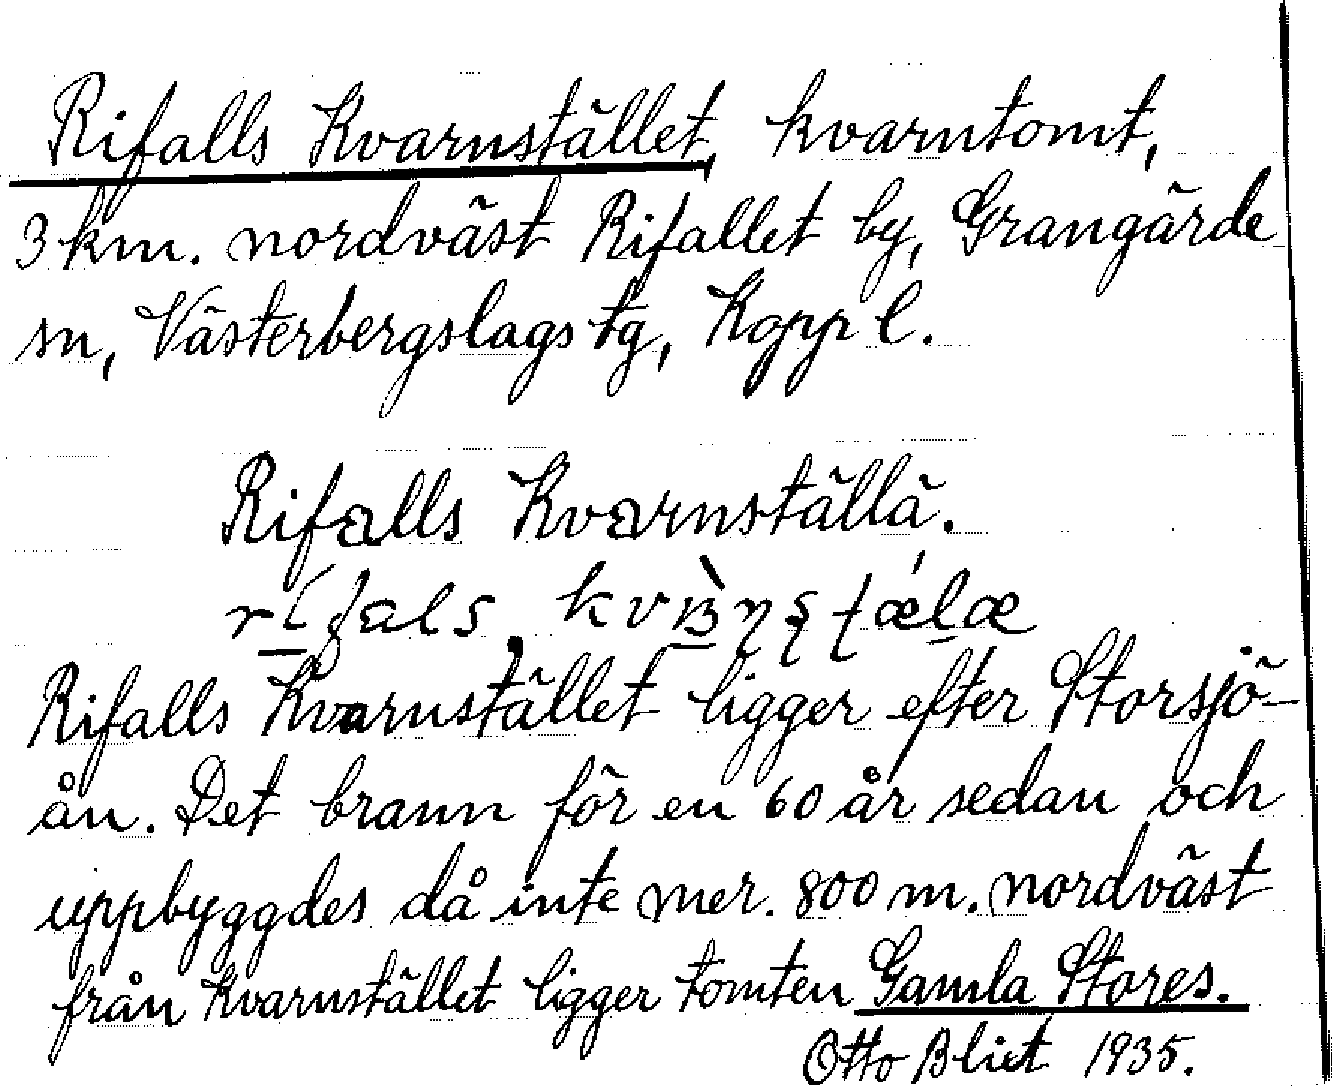 Rifalls Kvarnstället, kvarntomt,
3 km. nordväst Rifallet by, Grangärde
sn, Västerbergslags tg, Kopp l.
Rifalls Kvarnställä.
Rifalls Kvarnstället ligger efter Storsjö-
ån. Det brann för en 60 år sedan och
uppbyggdes då inte mer. 800 m. nordväst
från Kvarnstället ligger tomten Gamla Stores.
Otto Blixt 1935.